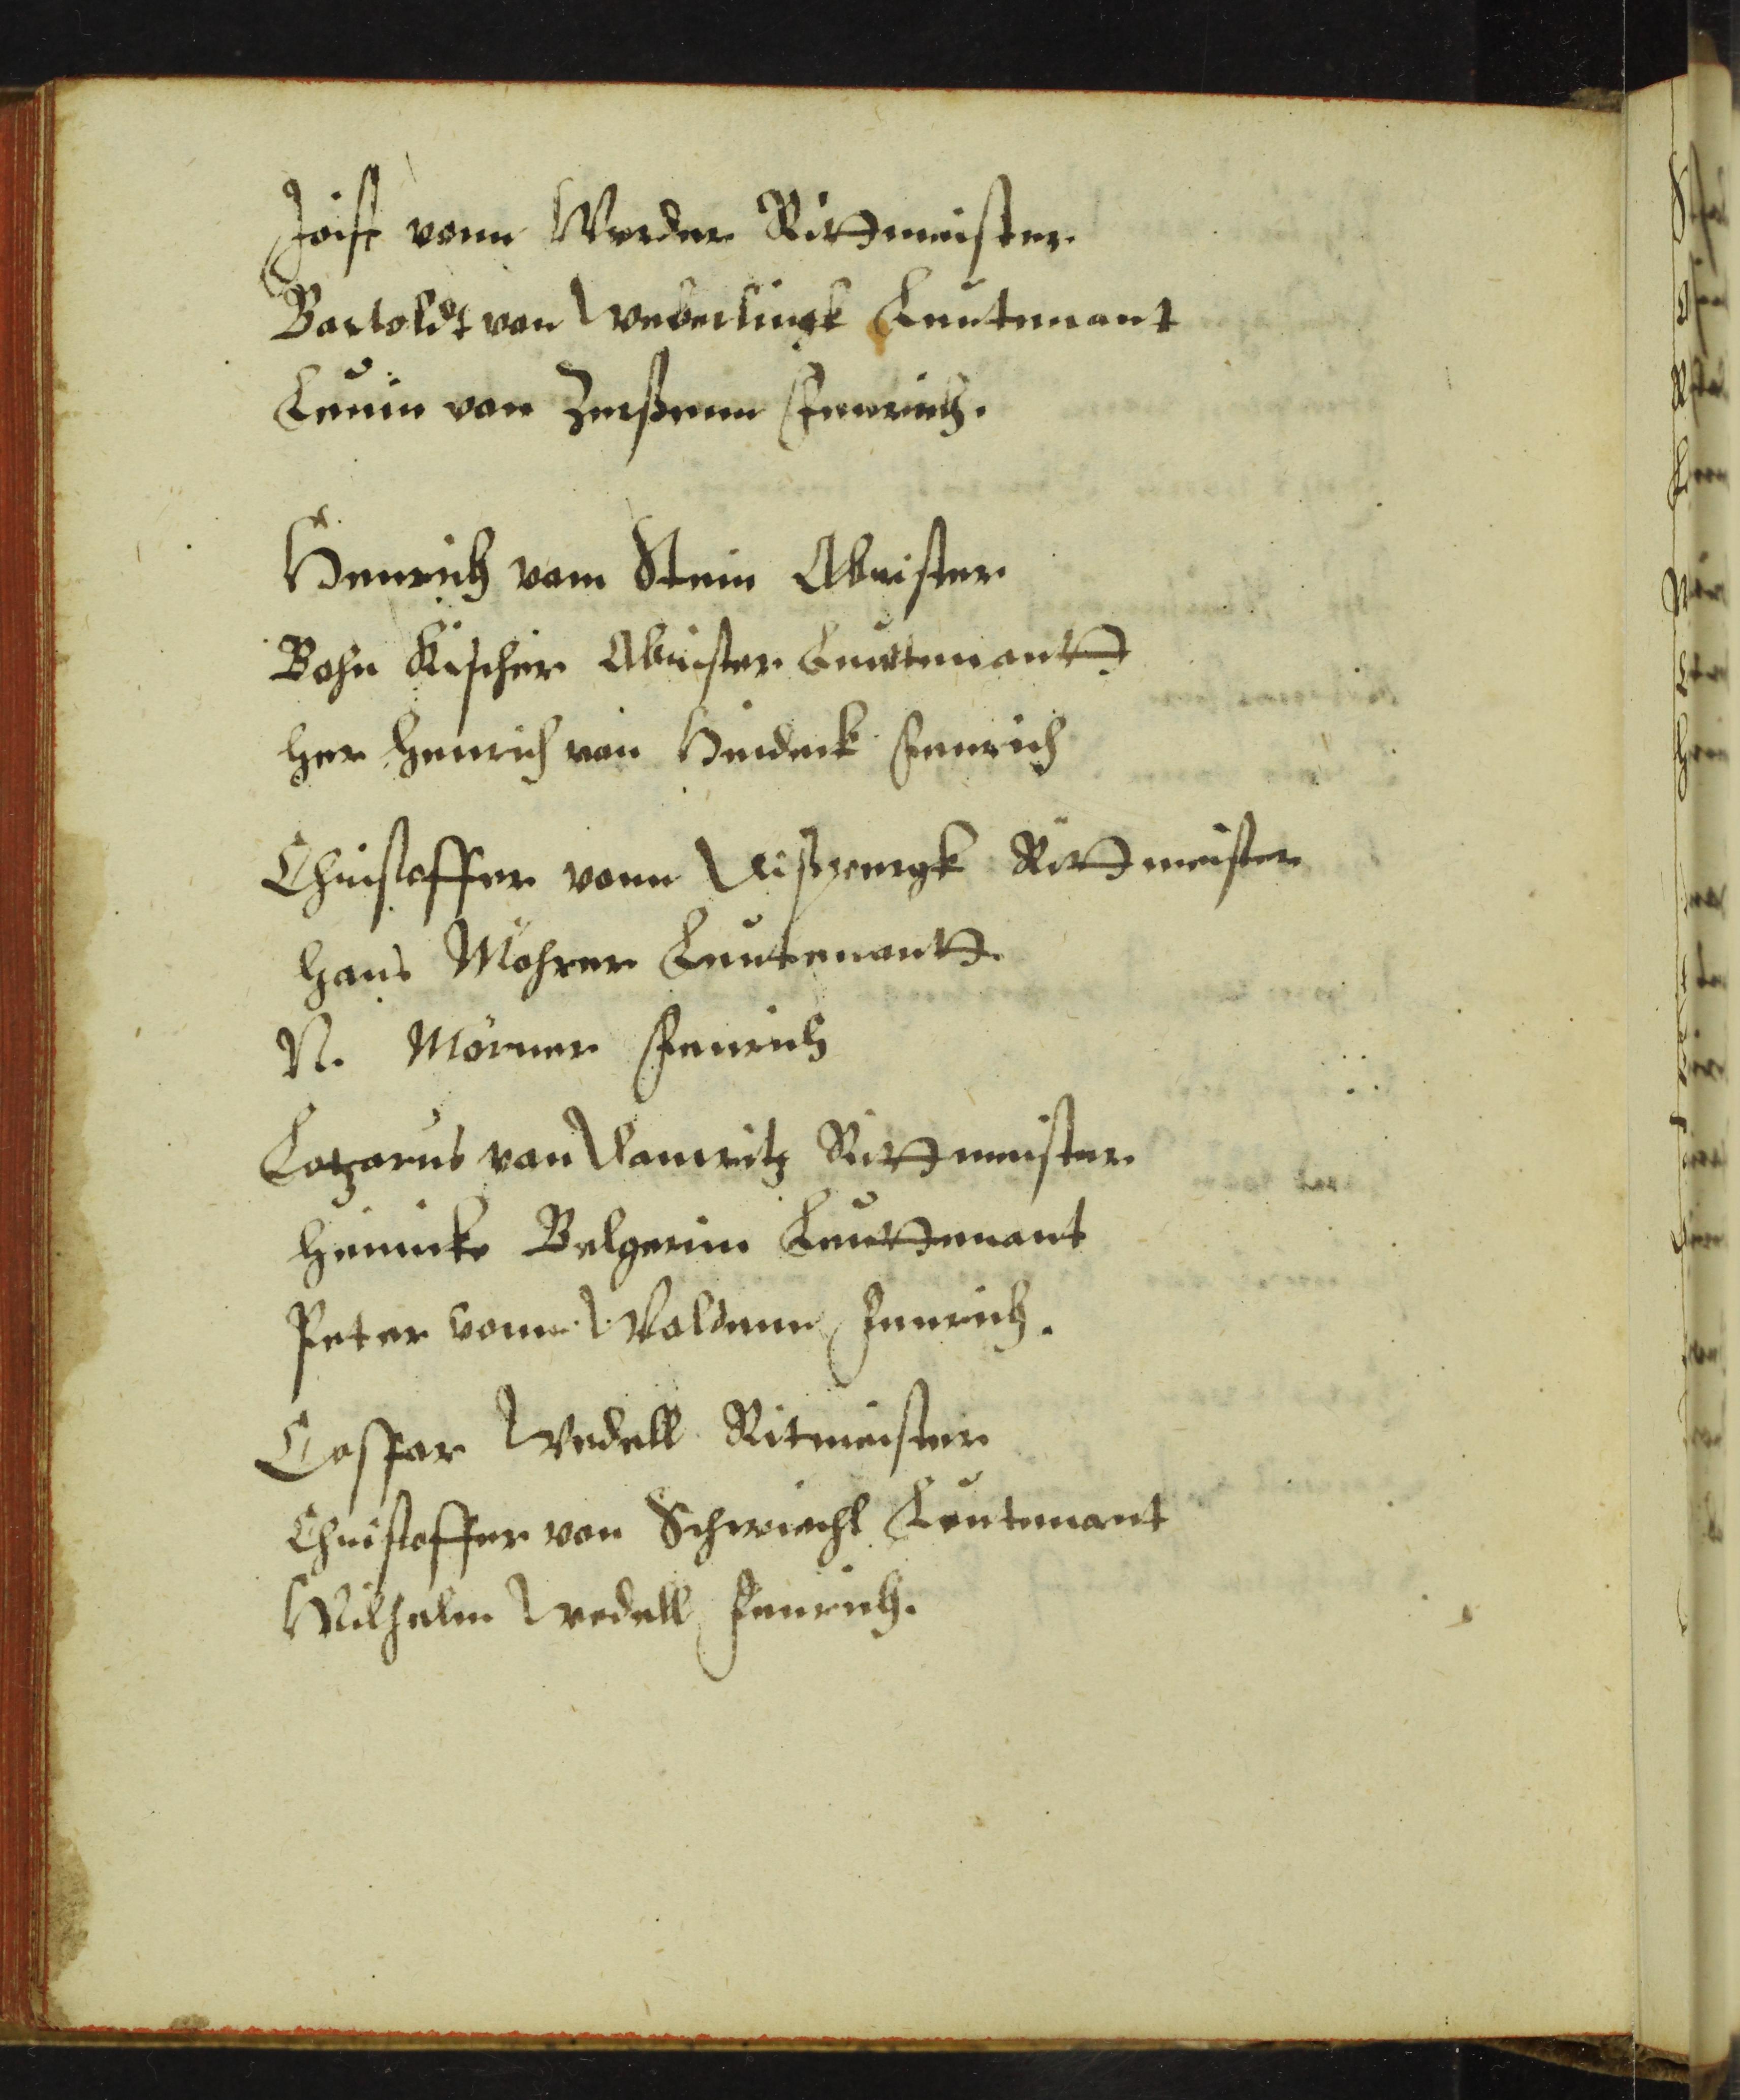 Joist vonn Werder Rittmeister
Bartoldt von Weberlingk Leutenant
Leuin von Zerßenn Fenrich.
Henrich vom Stein Obrister
Bohn Kischer Obrister Leuttenantt
her Henrich von Heideck Fenrich
Christoffer vonn Rittmeister
Hans Mohrer Leutenantt.
N. Mörner Fenrich
Latzarus von Rittmeister
Heinicke Belgerim Leuttenant
Peter vonn Woldenn Fenrich.
Caspar Wedell Ritmeister
Christoffer von Schwiecht Leutenant
Wilhelm Wedell Fenrich.